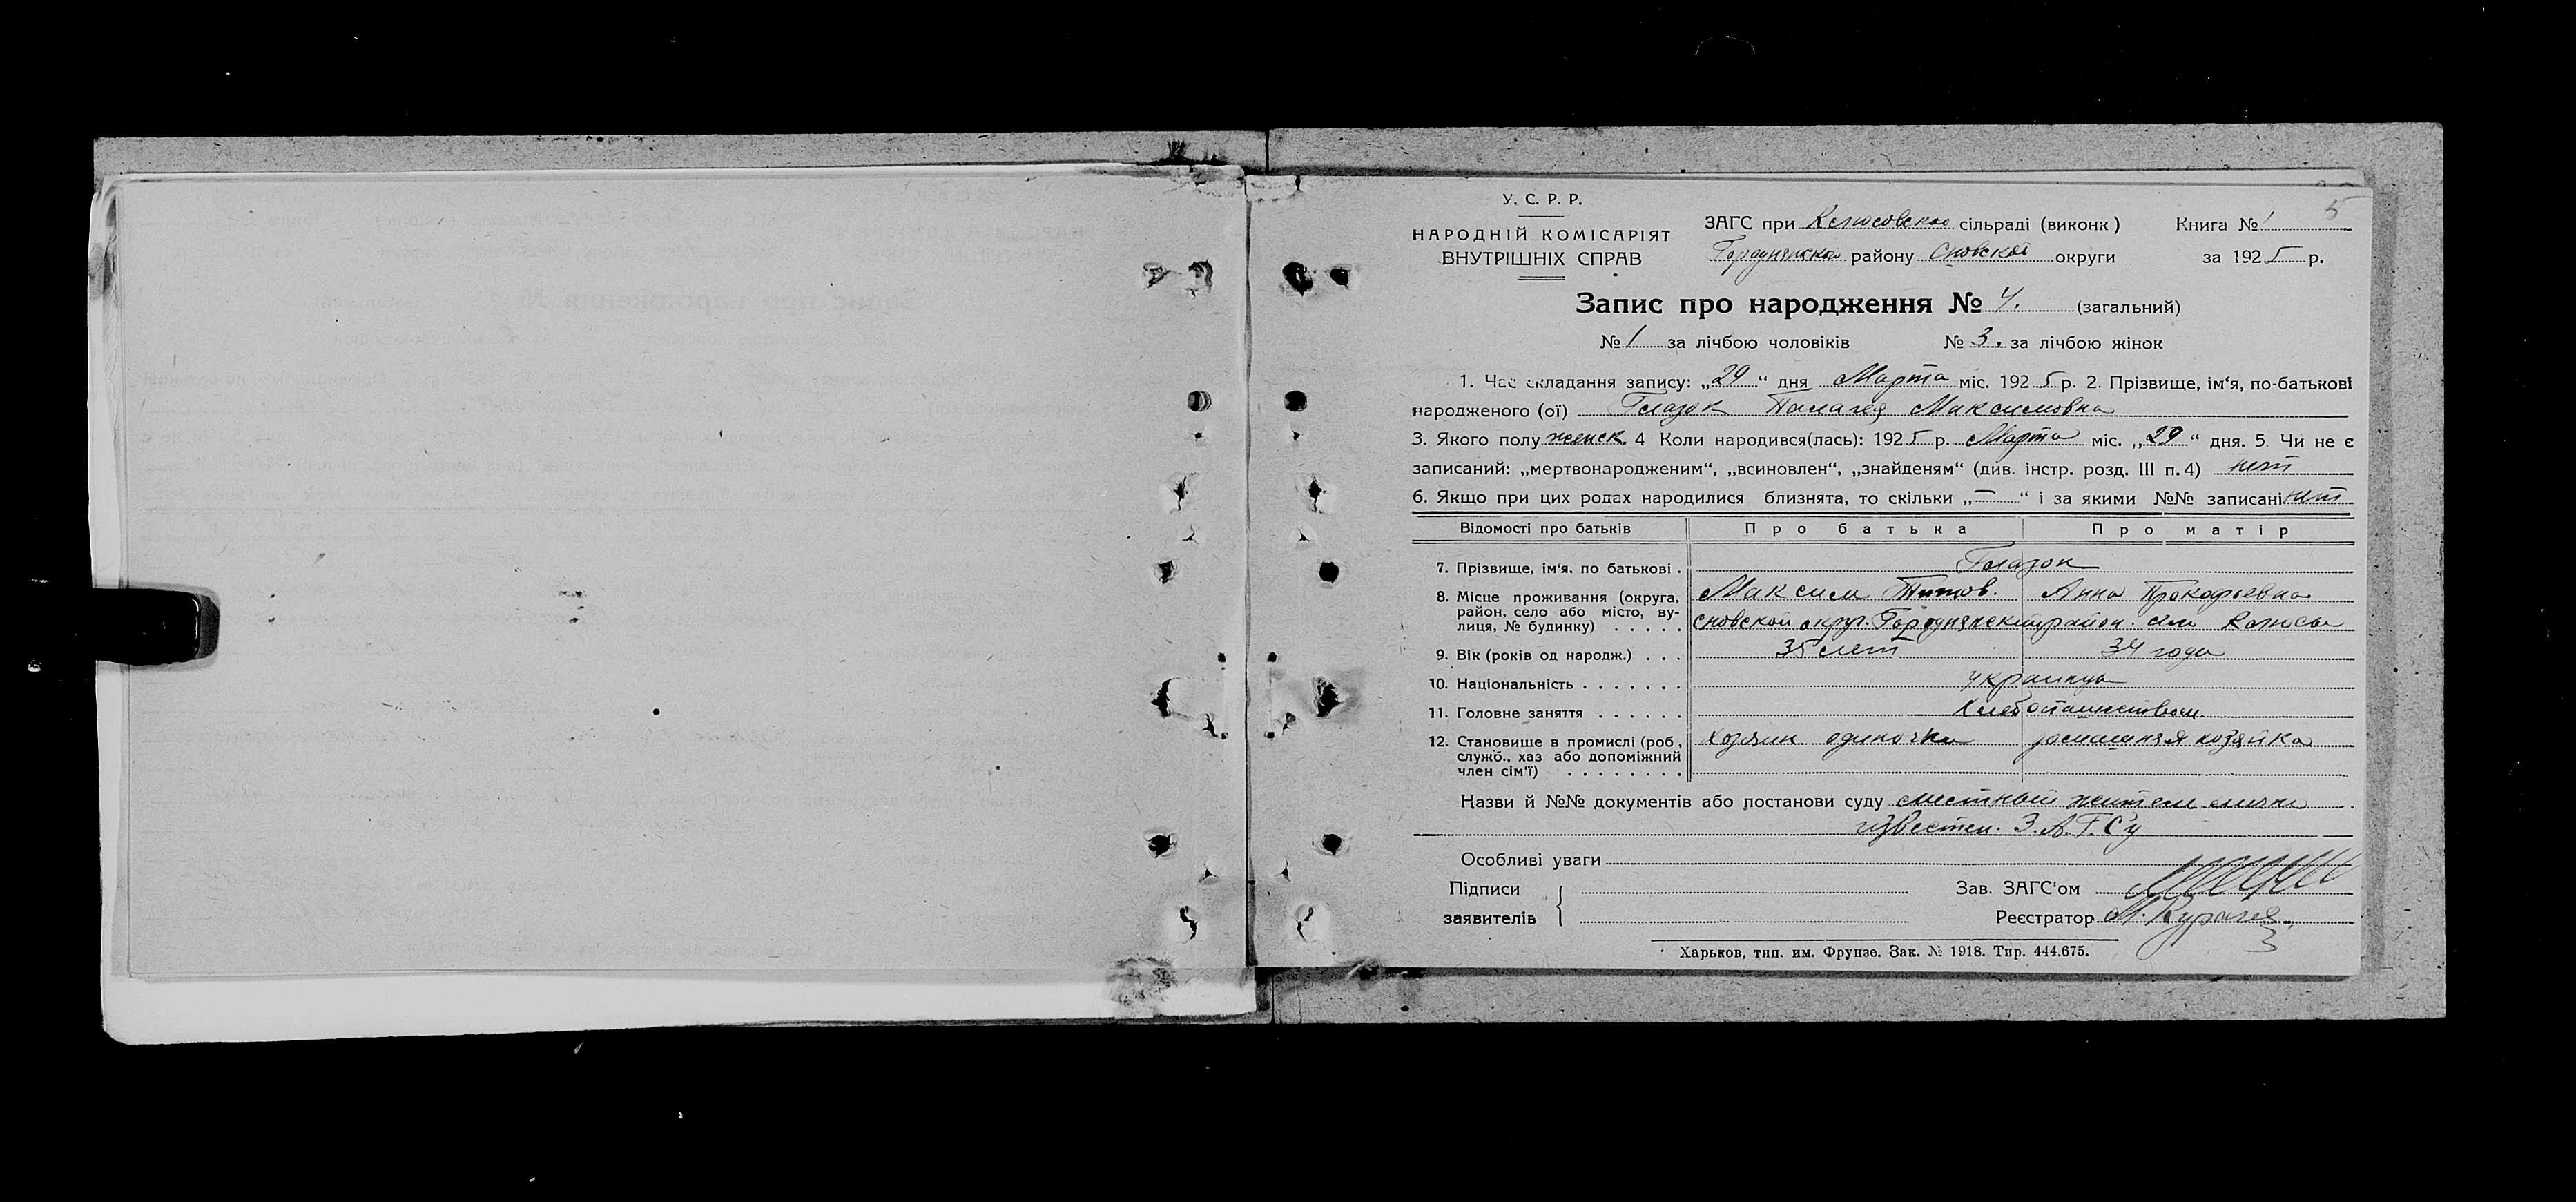 5
У. С. Р. Р.
НАРОДНІЙ КОМІСАРІЯТ
ВНУТРІШНІХ СПРАВ
ЗАГС при Клюсовском сільраді (виконк)
Книга № 1
Городнянском району Сновской округи
за 1925 р.
Запис про народження № 4. (загальний)
№ 1 за лічбою чоловіків № 3. за лічбою жінок
1. Час складання запису: „29“ дня Марта міс. 1925 р. 2. Прізвище, ім‘я, по-батькові
народженого (ої) Глазок Палагея Максимовна
3. Якого полу женск. 4 Коли народився(лась): 1925 р. Марта міс. „29“ дня. 5. Чи не є
записаний: „мертвонародженим“, „всиновлен“, „знайденям“ (див. інстр. розд. III п. 4) нет
6. Якщо при цих родах народилися близнята, то скільки „—“ і за якими №№ записані нет
Відомості про батьків Про батька Про матір
7. Прізвище, ім‘я, по батькові . Глазок
Максим Титов. Анна Прокофьевна
8. Місце проживання (округа,
район, село або місто, ву-
лиця, № будинку) . . . . .
Сновской округ. Городнянский район. село Клюсы
9. Вік (років од народж.) . . . 35 лет 34 года
10. Національність . . . . . . . украинцы
11. Головне заняття . . . . . . Хлебопашеством
12. Становище в промислі (роб., Хозяин одиночка домашняя хозяйка
служб., хаз або допоміжний
член сім‘ї) . . . . . . . .
Назви й №№ документів або постанови суду местный жители лично
известен. З.А.Г.С‘у
Особливі уваги
Підписи
заявителів
Зав. ЗАГС‘ом
Реєстратор М.
Харьков, тип. им. Фрунзе. Зак. № 1918. Тир. 444.675.